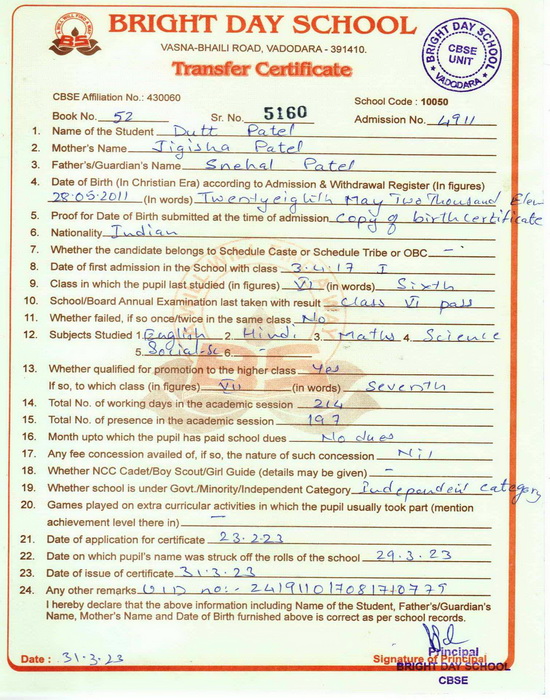 BRIGHT DAY SCHOOL
VASNA-BHAILI ROAD, VADODARA - 391410.
Transfer Certificate
BRIGHT DAY SCHOOL
CBSE
UNIT
VADODARA
CBSE Affiliation No.: 430060
School Code : 10050
Book No. 52 Sr. No. 5160 Admission No. 4911
1. Name of the Student Dutt Patel
2. Mother's Name Jigisha Patel
3. Father's/Guardian's Name Snehal Patel
4. Date of Birth (In Christian Era) according to Admission & Withdrawal Register (In figures)
28.05.2011 (In words) Twentyeighth May Two Thousand Elev
5. Proof for Date of Birth submitted at the time of admission copy of birth certificate
6. Nationality Indian
7. Whether the candidate belongs to Schedule Caste or Schedule Tribe or OBC -
8. Date of first admission in the School with class 3.4.17 I
9. Class in which the pupil last studied (in figures) VI (in words) Sixth
10. School/Board Annual Examination last taken with result class VI pass
11. Whether failed, if so once/twice in the same class No
12. Subjects Studied 1. English 2. Hindi 3. Maths 4. Science
5. Social-Sc 6. -
13. Whether qualified for promotion to the higher class Yes
If so, to which class (in figures) VII (in words) Seventh
14. Total No. of working days in the academic session 214
15. Total No. of presence in the academic session 197
16. Month upto which the pupil has paid school dues No dues
17. Any fee concession availed of, if so, the nature of such concession Nil
18. Whether NCC Cadet/Boy Scout/Girl Guide (details may be given) -
19. Whether school is under Govt./Minority/Independent Category Independent category
20. Games played on extra curricular activities in which the pupil usually took part (mention
achievement level there in) -
21. Date of application for certificate 23.2.23
22. Date on which pupil's name was struck off the rolls of the school 29.3.23
23. Date of issue of certificate 31.3.23
24. Any other remarks UID no:- 241911017081710775
I hereby declare that the above information including Name of the Student, Father's/Guardian's
Name, Mother's Name and Date of Birth furnished above is correct as per school records.
Date : 31.3.23
Principal
Signature of Principal
BRIGHT DAY SCHOOL
CBSE